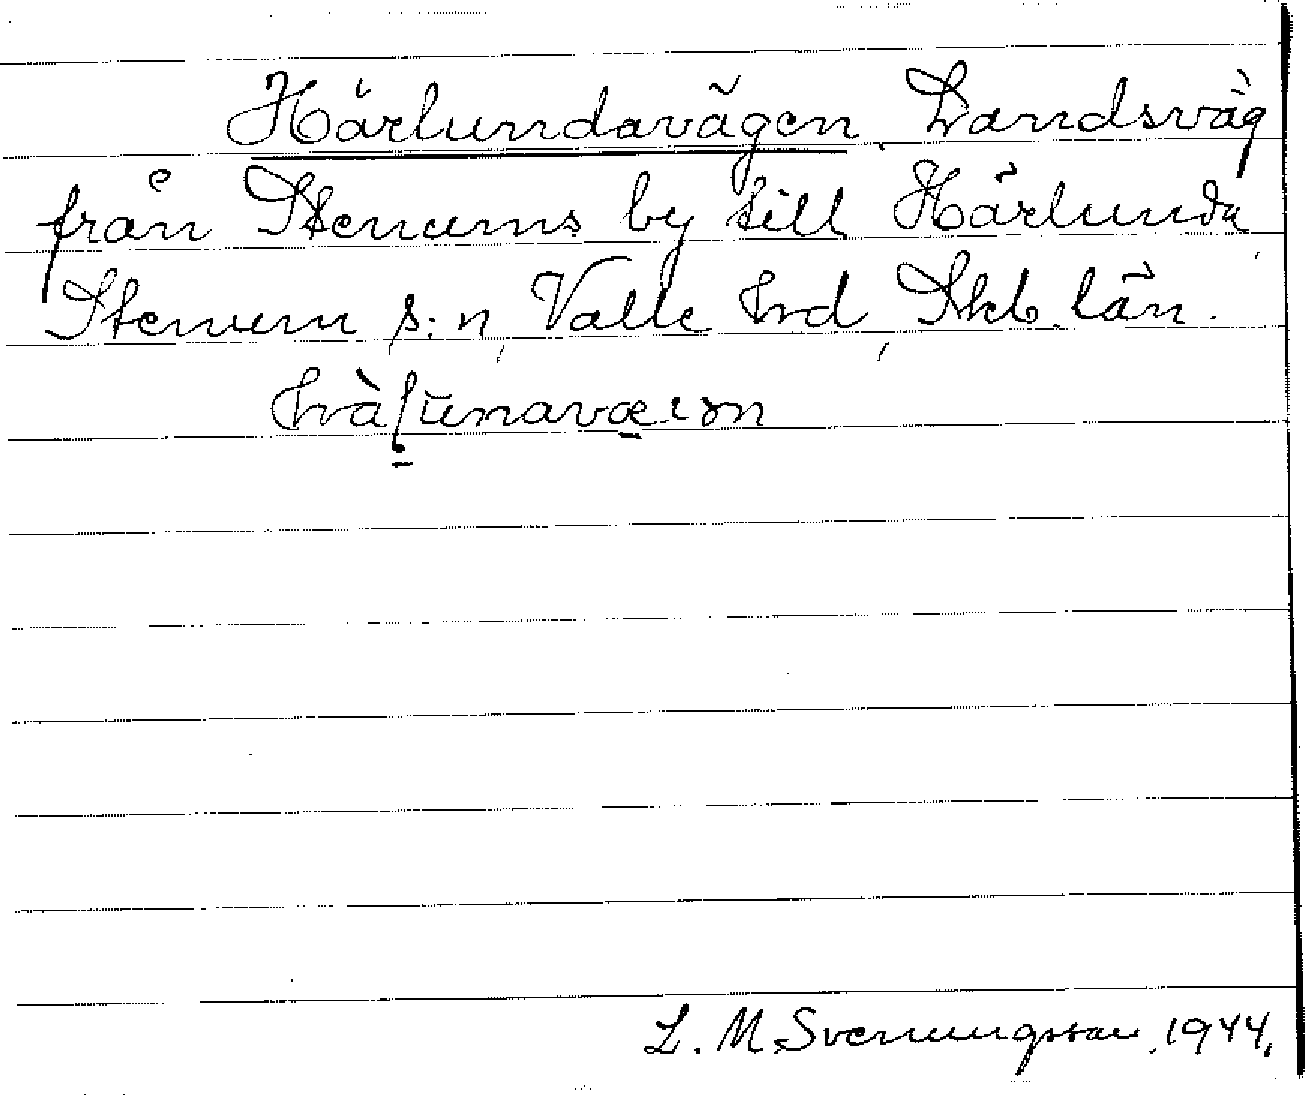 Härlundavägen. Landsväg
från Stenums by till Härlunda,
Stenum s:n, Valle hrd, Skb. län.
L. M. Svenungsson 1944.